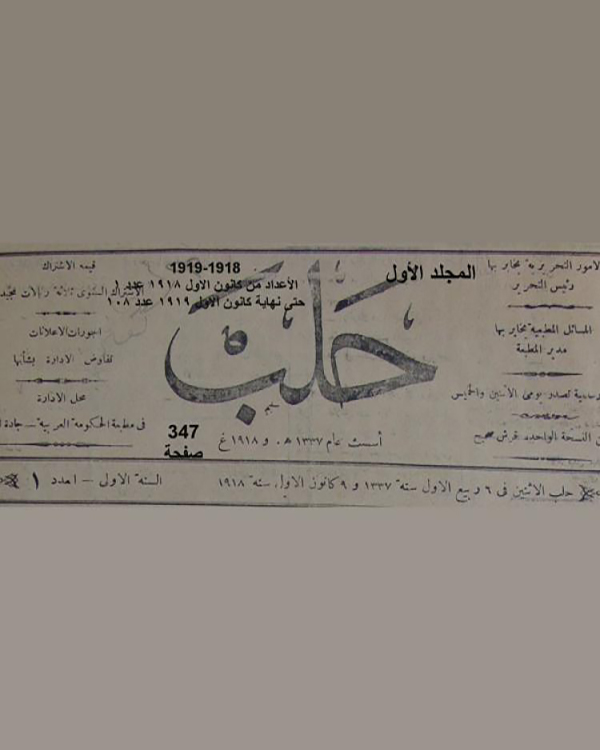 الامور التحريرية يخابر بها
رئيس التحرير
المسائل المطبعية يخابر بها
مدير المطبعة
تصدر يومى الاثنين والخميس
النسخة الواحدة غرش صحيح
المجلد الأول
1919-1918
الأعداد من كانون الاول ١٩١٨ عدد ١
حتى نهاية كانون الاول ١٩١٩ عدد ١٠٨
حلب
347
صفحة
أسست عام ١٣٣٧ هـ و ١٩١٨ غ
قيمة الاشتراك
الاشتراك السنوى ثلاثة ريالات
اجورات الاعلانات
تفاوض الادارة بشأنها
محل الادارة
فى مطبعة الحكومة العربية — جادة
حلب الاثنين فى ٦ ربيع الاول سنة ١٣٣٧ و ٩ كانون الاول سنة ١٩١٨
السنة الاولى — العدد ١